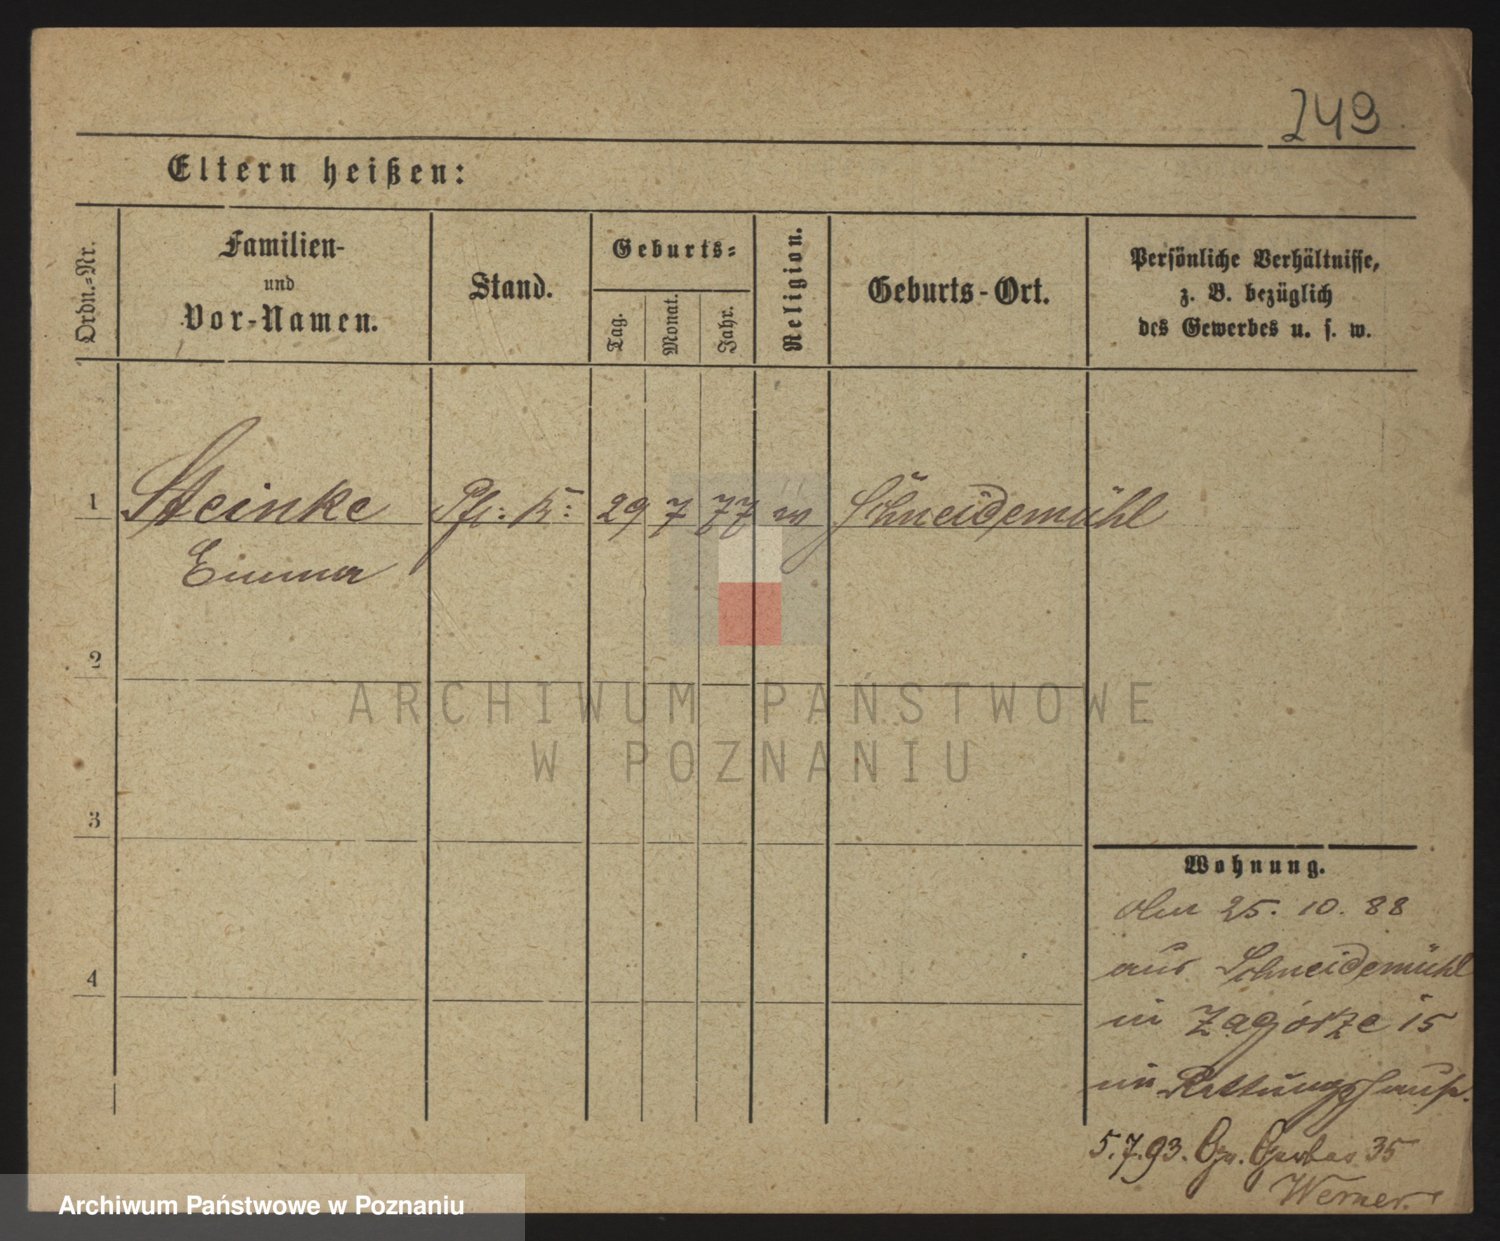 249
Eltern heißen:
Ordn.-Nr.
Familien-
und
Vor-Namen.
Stand.
Geburts-
Tag.
Monat.
Jahr.
Religion.
Geburts-Ort.
Persönliche Verhältnisse,
z. B. bezüglich
des Gewerbes u. s. w.
1 Steinke Pfl: K: 29 7 77 Schneidemühl
Emma
2
3
4
Wohnung.
25. 10. 88
aus Schneidemühl
in Zagórze 15
im Rettungshause.
5.7.93. Gr. Gerber 35
Werner.
ARCHIWUM PAŃSTWOWE
W POZNANIU
Archiwum Państwowe w Poznaniu